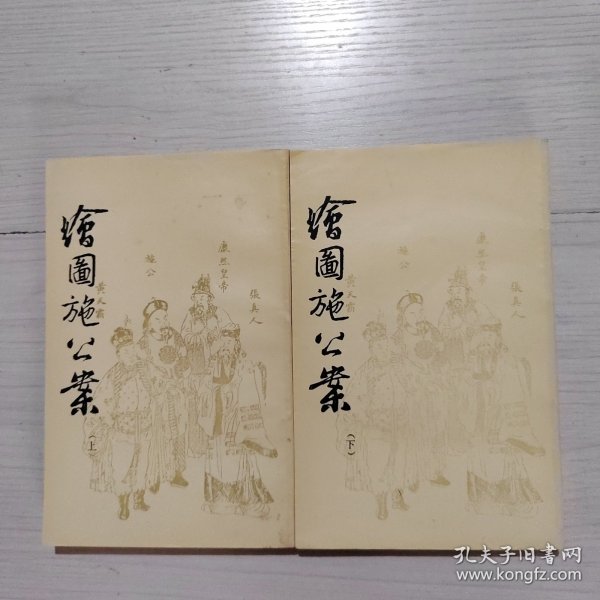 繪圖施公案
（上）
施公
黃天霸
康熙皇帝
張真人
繪圖施公案
（下）
施公
黃天霸
康熙皇帝
張真人
孔夫子旧书网
www.kongfz.com